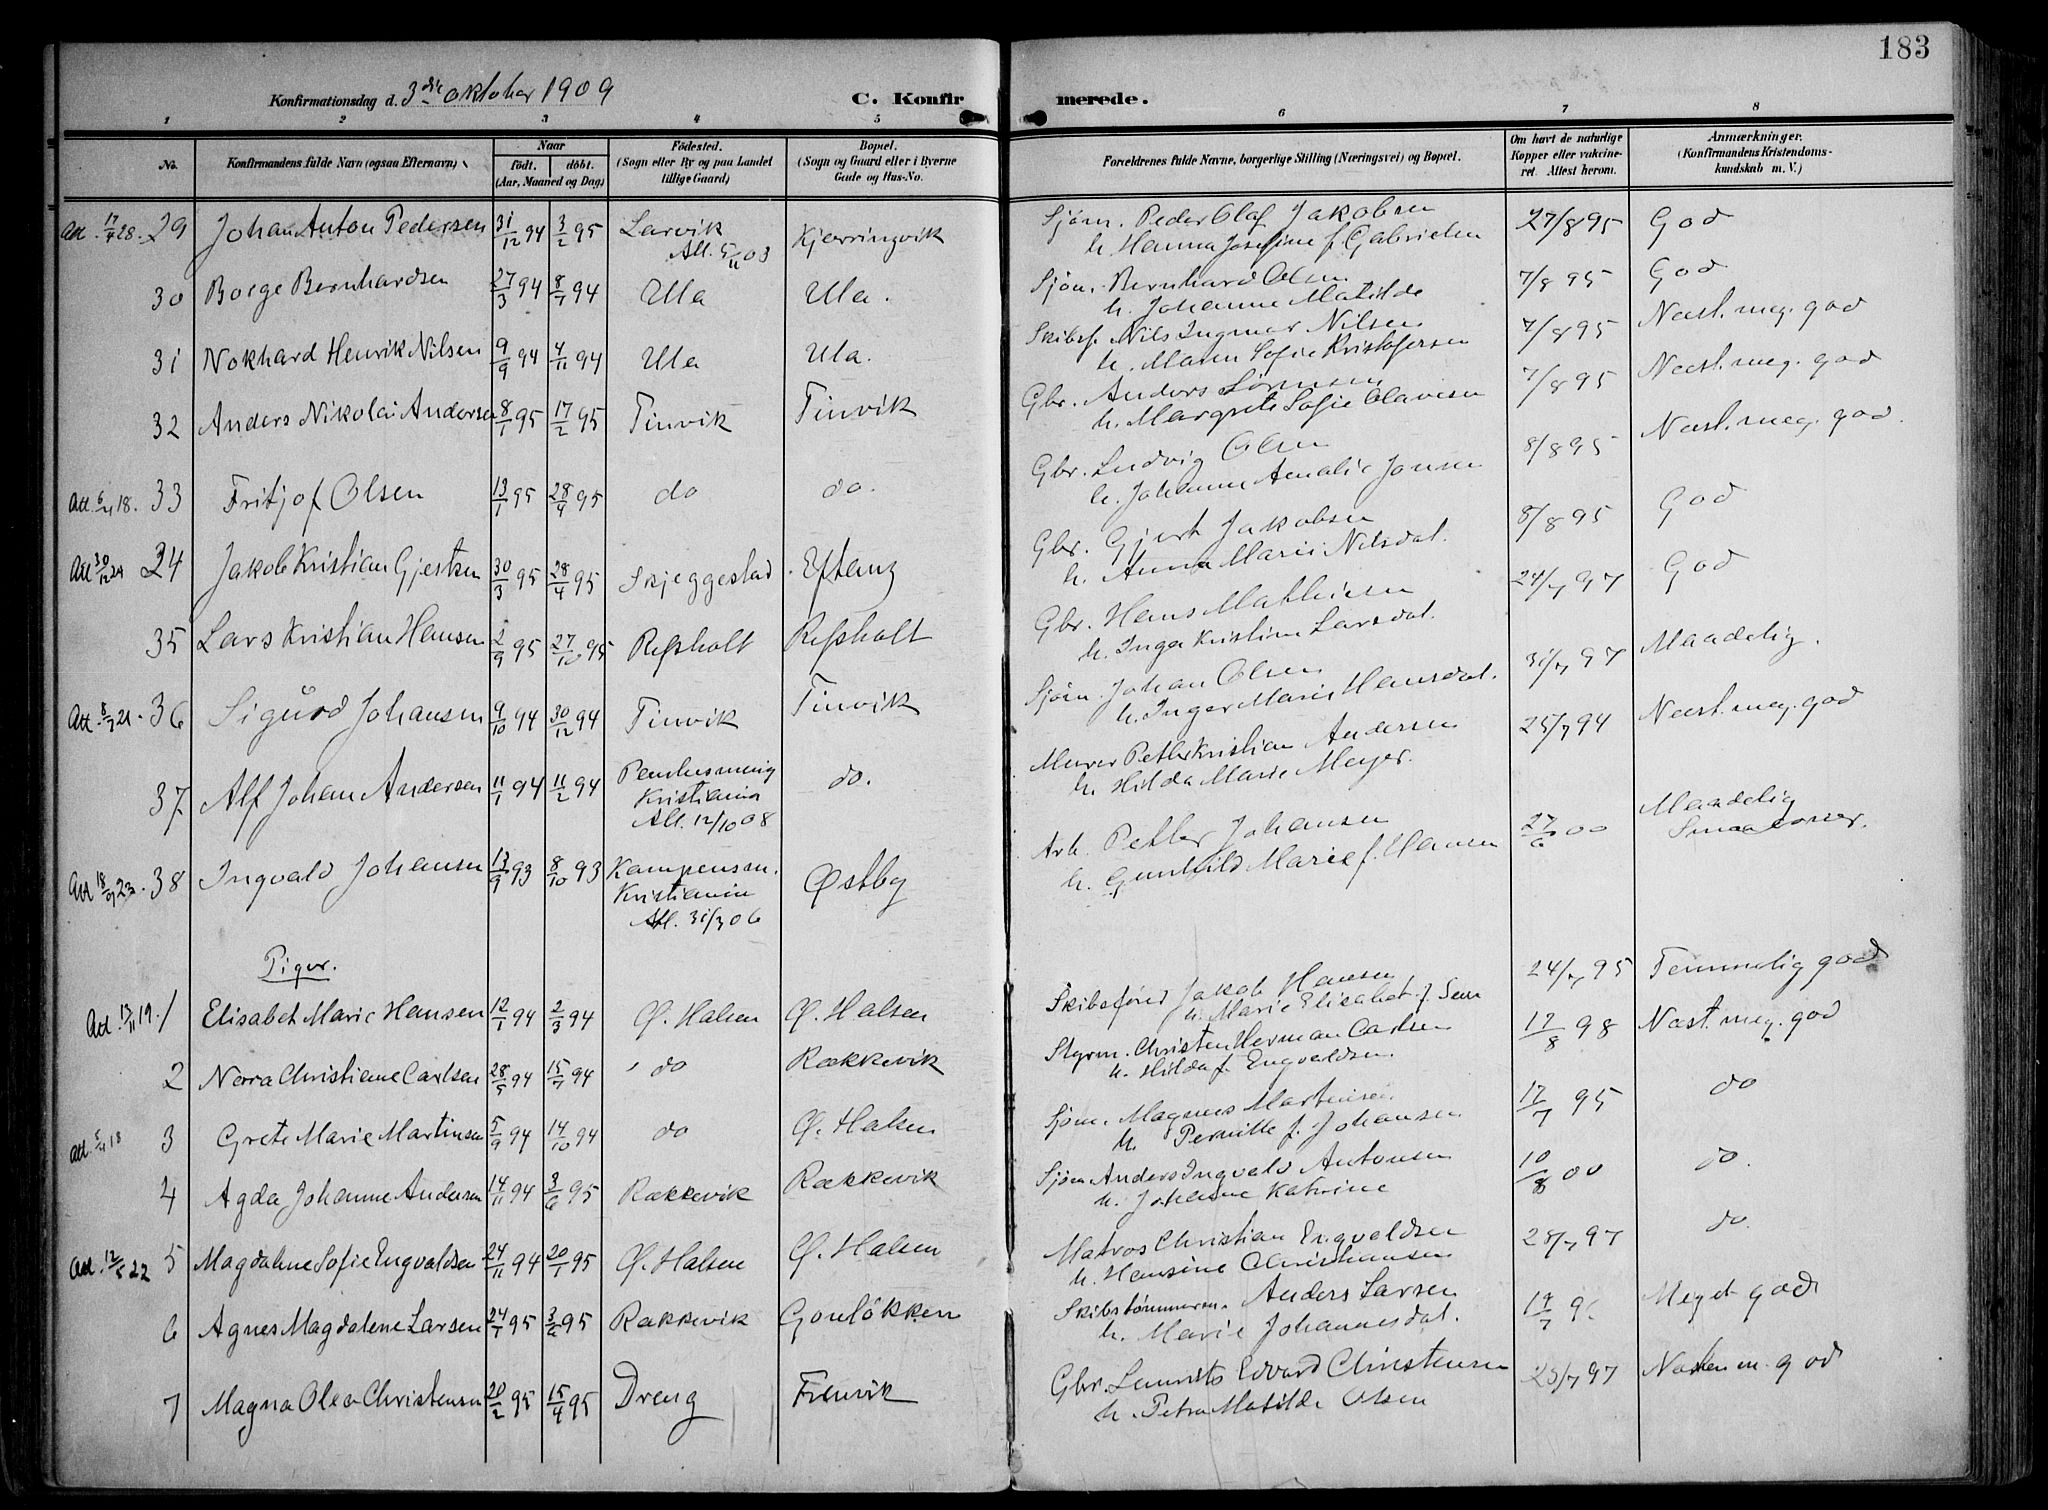 183
Konfirmationsdag d. 3die oktober 1909 C. Konfirmerede.
1 2 3 4 5 6 7 8
No. Konfirmandens fulde Navn (ogsaa Efternavn) Naar født. døbt. (Aar, Maaned og Dag) Fødested. (Sogn eller By og paa Landet tillige Gaard) Bopæl. (Sogn og Gaard eller i Byerne Gade og Hus-No. Forældrenes fulde Navne, borgerlige Stilling (Næringsvei) og Bopæl. Om havt de naturlige Kopper eller vaccineret. Attest herom. Anmærkninger. (Konfirmandens Kristendomskundskab m. V.)
Att. 17/4 28. 29 Johan Anton Pedersen 31/12 94 3/2 95 Larvik Kjerringvik Sjøm. Peder Olaf Jakobsen 27/8 95 God
Att. 5/11 03 h. Hanna Josefine f. Gabrielsen
30 Borge Bernhardsen 27/3 94 8/7 94 Ula Ula. Sjøm. Bernhard Olsen 7/8 95 God
h. Johanne Matilde
31 Nokhard Henrik Nilsen 9/9 94 4/11 94 Ula Ula. Skibsf. Nils Ingmar Nilsen 7/8 95 Næst. meg. god
h. Maren Sofie Kristofersen
32 Anders Nikolai Andersen 8/1 95 17/2 95 Tinvik Tinvik Gbr. Anders Sørensen 7/8 95 Næst. meg. god
h. Margrete Sofie Olavesen
Att. 6/4 18. 33 Fritjof Olsen 13/1 95 28/4 95 do do. Gbr. Ludvig Olsen 8/8 95 Næst. meg. god
h. Johanne Amalie Jonsen
Att 30/12 24 34 Jakob Kristian Gjertsen 30/3 95 28/4 95 Skjeggestad Eftang Gbr. Gjert Jakobsen 8/8 95 God
h. Anna Marie Nilsdat.
35 Lars Kristian Hansen 2/9 95 27/10 95 Refsholt Refsholt Gbr. Hans Mathiesen 24/7 97 God
h. Inga Kristine Larsdat.
Att. 8/7 21. 36 Sigurd Johansen 9/10 94 30/12 94 Tinvik Tinvik Sjøm. Johan Olsen 31/7 97 Maadelig.
h. Inger Marie Hansdat.
37 Alf Johan Andersen 11/1 94 11/2 94 do. Murer Petter Kristian Andersen 25/7 94 Næst. meg. god
Kristiania
Att. 12/10 08 h. Hilda Marie Meyer.
Att 18/9 23. 38 Ingvald Johansen 13/9 93 8/10 93 Kampensm. Østby Arb. Petter Johansen 27/6 00 Maadelig
Kristiania
Att. 31/3 06 h. Gunhild Marie f. Hansen
Piger.
Att. 13/11 19. 1 Elisabet Marie Hansen 12/1 94 2/3 94 Ø. Halsen Ø. Halsen Skibsfører Jakob Hansen 24/7 95 Temmelig god
h. Marie Elisabet f. Sem
2 Nora Christiane Carlsen 28/5 94 15/7 94 do Rækkevik Styrm. Christen Herman Carlsen 17/8 98 Næst. meg. god
h. Hilda f. Engvaldsen.
Att. 5/4 18 3 Grete Marie Martinsen 5/9 94 14/10 94 do Ø. Halsen Sjøm. Magnus Martinsen 17/7 95 do
h. Pernille f. Johansen
4 Agda Johanne Andersen 14/11 94 3/6 95 Rækkevik Rækkevik Sjøm Anders Ingvald Antonsen 10/8 00 do.
h. Johanne Katrine
Att. 12/5 22 5 Magdalene Sofie Engvaldsen 24/11 94 20/1 95 Ø. Halsen Ø. Halsen Matros Christian Engvaldsen 28/7 97 do
h. Hansine Christiansen
6 Agnes Magdalene Larsen 24/1 95 3/6 95 Rækkevik Gonløkken Skibstømmerm. Anders Larsen Meget god
h. Marie Johannesdat.
7 Magna Olea Christensen 20/2 95 15/4 95 Dreng Gbr. Edvard Christensen 25/7 97 Næsten m. god
h. Petra Matilde Olsen